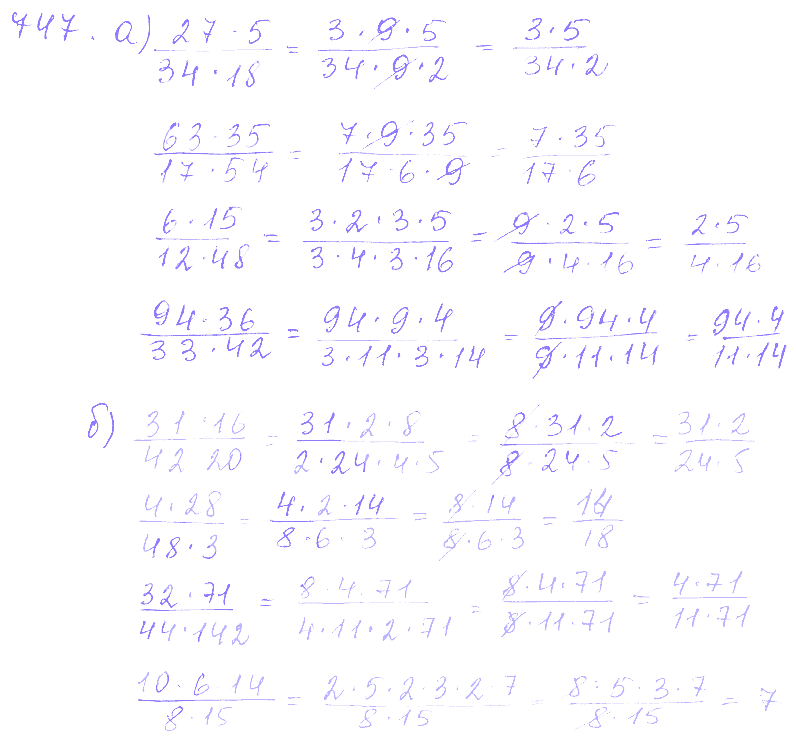 747. а) (27 · 5)/(34 · 18) = (3 · 9 · 5)/(34 · 9 · 2) = (3 · 5)/(34 · 2)
(63 · 35)/(17 · 54) = (7 · 9 · 35)/(17 · 6 · 9) = (7 · 35)/(17 · 6)
(6 · 15)/(12 · 48) = (3 · 2 · 3 · 5)/(3 · 4 · 3 · 16) = (9 · 2 · 5)/(9 · 4 · 16) = (2 · 5)/(4 · 16)
(94 · 36)/(33 · 42) = (94 · 9 · 4)/(3 · 11 · 3 · 14) = (9 · 94 · 4)/(9 · 11 · 14) = (94 · 4)/(11 · 14)
б) (31 · 16)/(42 20) = (31 · 2 · 8)/(2 · 24 · 4 · 5) = (8 · 31 · 2)/(8 · 24 · 5) = (31 · 2)/(24 · 5)
(4 · 28)/(48 · 3) = (4 · 2 · 14)/(8 · 6 · 3) = (8 · 14)/(8 · 6 · 3) = 14/18
(32 · 71)/(44 · 142) = (8 · 4 · 71)/(4 · 11 · 2 · 71) = (8 · 4 · 71)/(8 · 11 · 71) = (4 · 71)/(11 · 71)
(10 · 6 · 14)/(8 · 15) = (2 · 5 · 2 · 3 · 2 · 7)/(8 · 15) = (8 · 5 · 3 · 7)/(8 · 15) = 7